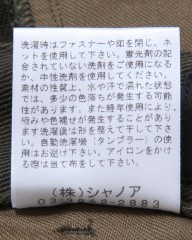 洗濯時はファスナーや釦を閉じ、ネ
ットを使用して下さい。蛍光剤の含
まれていない洗剤をご使用になる
か、中性洗剤を使用してください。
素材の性質上、水や汗で濡れた状態
では、多少の色落ちが発生する可能
性があります。また経年使用により、
縮みや色褪せが発生することがあり
ます洗濯後は形を整えて干して下さ
い。自動洗濯機（タンブラー）の使用
はお避け下さい。アイロンをかけ
る際は当て布をして下さい。
（株）シャノア